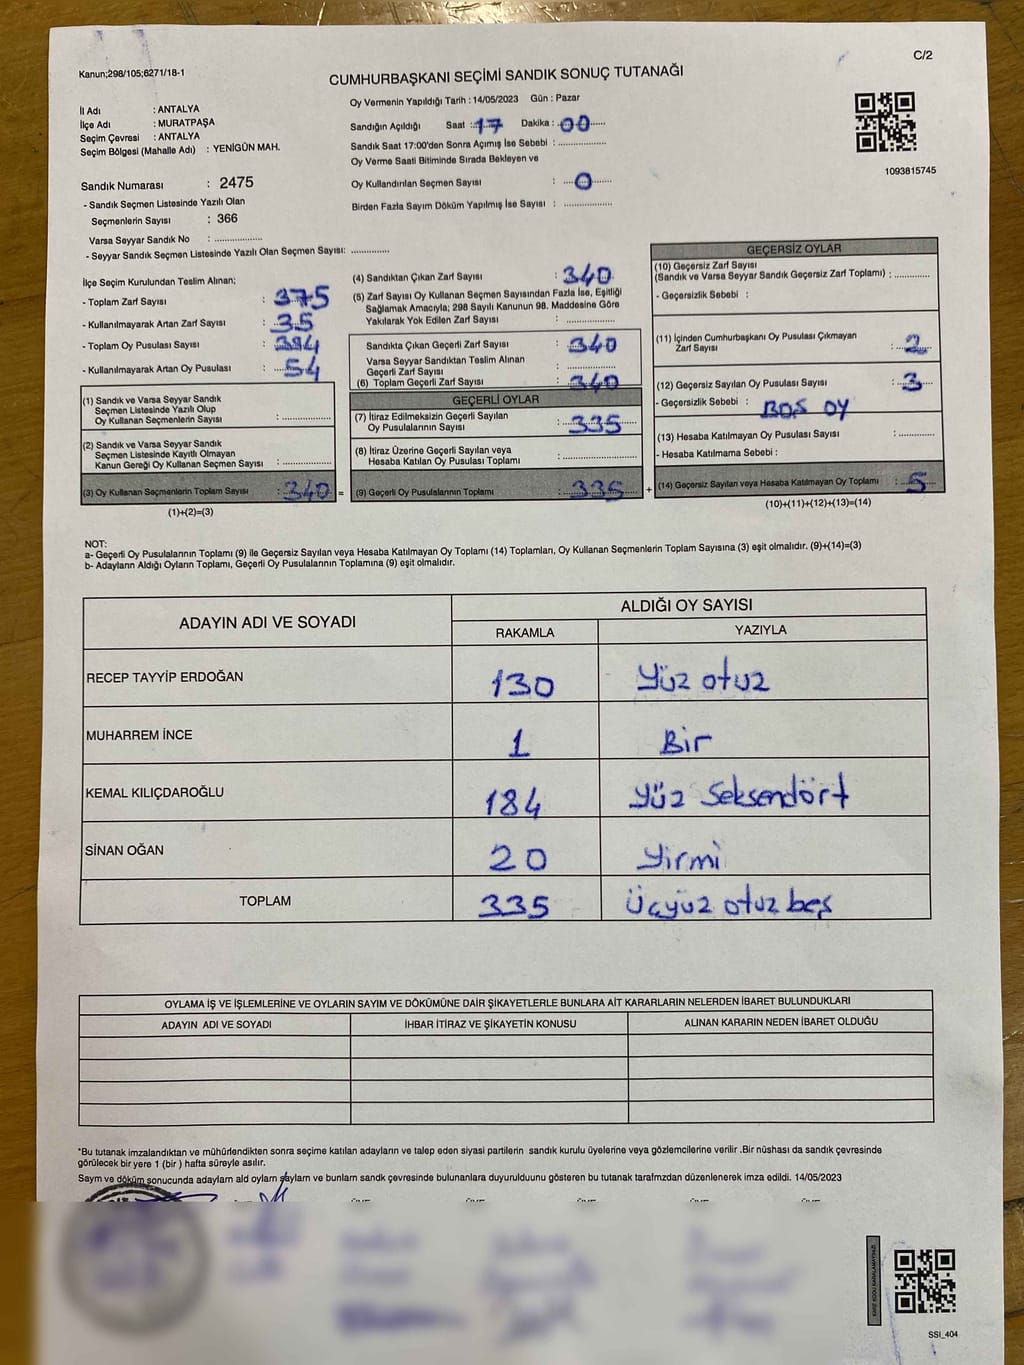 C/2
Kanun;298/105;6271/18-1
CUMHURBAŞKANI SEÇİMİ SANDIK SONUÇ TUTANAĞI
İl Adı : ANTALYA
İlçe Adı : MURATPAŞA
Seçim Çevresi : ANTALYA
Seçim Bölgesi (Mahalle Adı) : YENİGÜN MAH.
Oy Vermenin Yapıldığı Tarih : 14/05/2023 Gün : Pazar
Sandığın Açıldığı Saat : 17 Dakika : 00
Sandık Saat 17:00'den Sonra Açımış İse Sebebi :
Oy Verme Saati Bitiminde Sırada Bekleyen ve
Oy Kullandırılan Seçmen Sayısı : 0
Birden Fazla Sayım Döküm Yapılmış İse Sayısı :
1093815745
Sandık Numarası : 2475
- Sandık Seçmen Listesinde Yazılı Olan
Seçmenlerin Sayısı : 366
Varsa Seyyar Sandık No :
- Seyyar Sandık Seçmen Listesinde Yazılı Olan Seçmen Sayısı:
İlçe Seçim Kurulundan Teslim Alınan;
- Toplam Zarf Sayısı : 375
- Kullanılmayarak Artan Zarf Sayısı : 35
- Toplam Oy Pusulası Sayısı : 394
- Kullanılmayarak Artan Oy Pusulası : 54
(1) Sandık ve Varsa Seyyar Sandık
Seçmen Listesinde Yazılı Olup
Oy Kullanan Seçmenlerin Sayısı :
(2) Sandık ve Varsa Seyyar Sandık
Seçmen Listesinde Kayıtlı Olmayan
Kanun Gereği Oy Kullanan Seçmen Sayısı :
(3) Oy Kullanan Seçmenlerin Toplam Sayısı : 340 =
(1)+(2)=(3)
(4) Sandıktan Çıkan Zarf Sayısı : 340
(5) Zarf Sayısı Oy Kullanan Seçmen Sayısından Fazla İse, Eşitliği
Sağlamak Amacıyla; 298 Sayılı Kanunun 98. Maddesine Göre
Yakılarak Yok Edilen Zarf Sayısı :
Sandıkta Çıkan Geçerli Zarf Sayısı : 340
Varsa Seyyar Sandıktan Teslim Alınan
Geçerli Zarf Sayısı :
(6) Toplam Geçerli Zarf Sayısı : 340
GEÇERLİ OYLAR
(7) İtiraz Edilmeksizin Geçerli Sayılan
Oy Pusulalarının Sayısı : 335
(8) İtiraz Üzerine Geçerli Sayılan veya
Hesaba Katılan Oy Pusulası Toplamı :
(9) Geçerli Oy Pusulalarının Toplamı : 335 +
GEÇERSİZ OYLAR
(10) Geçersiz Zarf Sayısı
(Sandık ve Varsa Seyyar Sandık Geçersiz Zarf Toplamı) :
- Geçersizlik Sebebi :
(11) İçinden Cumhurbaşkanı Oy Pusulası Çıkmayan
Zarf Sayısı : 2
(12) Geçersiz Sayılan Oy Pusulası Sayısı : 3
- Geçersizlik Sebebi : BOŞ OY
(13) Hesaba Katılmayan Oy Pusulası Sayısı :
- Hesaba Katılmama Sebebi :
(14) Geçersiz Sayılan veya Hesaba Katılmayan Oy Toplamı : 5
(10)+(11)+(12)+(13)=(14)
NOT:
a- Geçerli Oy Pusulalarının Toplamı (9) ile Geçersiz Sayılan veya Hesaba Katılmayan Oy Toplamı (14) Toplamları, Oy Kullanan Seçmenlerin Toplam Sayısına (3) eşit olmalıdır. (9)+(14)=(3)
b- Adayların Aldığı Oyların Toplamı, Geçerli Oy Pusulalarının Toplamına (9) eşit olmalıdır.
ADAYIN ADI VE SOYADI ALDIĞI OY SAYISI
RAKAMLA YAZIYLA
RECEP TAYYİP ERDOĞAN 130 Yüz otuz
MUHARREM İNCE 1 Bir
KEMAL KILIÇDAROĞLU 184 Yüz Seksendört
SİNAN OĞAN 20 Yirmi
TOPLAM 335 Üçyüz otuz beş
OYLAMA İŞ VE İŞLEMLERİNE VE OYLARIN SAYIM VE DÖKÜMÜNE DAİR ŞİKAYETLERLE BUNLARA AİT KARARLARIN NELERDEN İBARET BULUNDUKLARI
ADAYIN ADI VE SOYADI İHBAR İTİRAZ VE ŞİKAYETİN KONUSU ALINAN KARARIN NEDEN İBARET OLDUĞU
*Bu tutanak imzalandıktan ve mühürlendikten sonra seçime katılan adayların ve talep eden siyasi partilerin sandık kurulu üyelerine veya gözlemcilerine verilir .Bir nüshası da sandık çevresinde
görülecek bir yere 1 (bir ) hafta süreyle asılır.
Sayım ve döküm sonucunda adayların ald oyların sayıları ve bunların sandık çevresinde bulunanlara duyurulduunu gösteren bu tutanak tarafmzdan düzenlenerek imza edildi. 14/05/2023
SSI_404